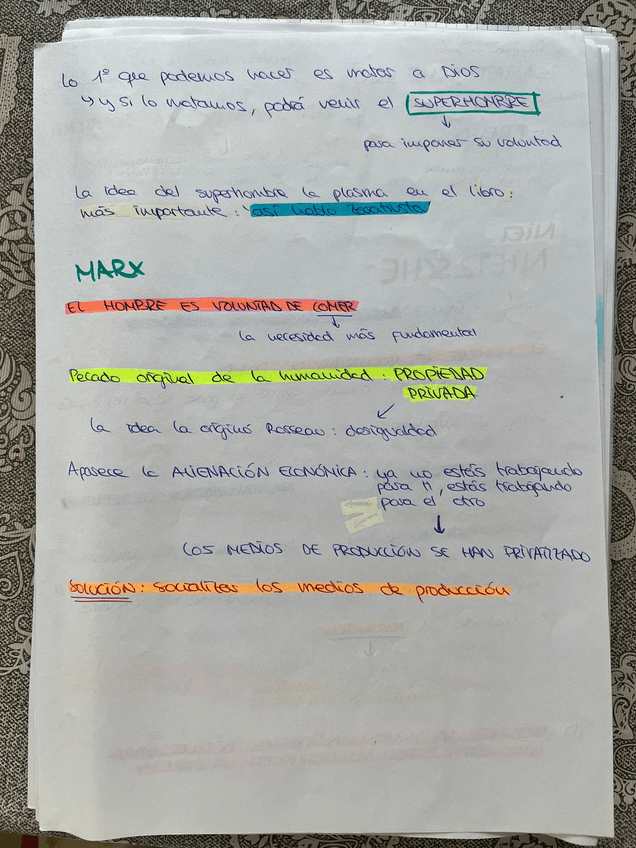 Lo 1º que podemos hacer es matar a Dios
↳ y si lo matamos, podrá venir el SUPERHOMBRE
↓
para imponer su voluntad
La idea del superhombre la plasma en el libro
más importante: "así habló Zaratustra
MARX
EL HOMBRE ES VOLUNTAD DE COMER
↓
la necesidad más fundamental
Pecado original de la humanidad: PROPIEDAD
PRIVADA
↙
la idea la originó Rosseau: desigualdad
Aparece la ALIENACIÓN ECONÓMICA: ya no estás trabajando
para ti, estás trabajando
para el otro
↓
LOS MEDIOS DE PRODUCCIÓN SE HAN PRIVATIZADO
SOLUCIÓN: socializar los medios de producción
NIETZSCHE